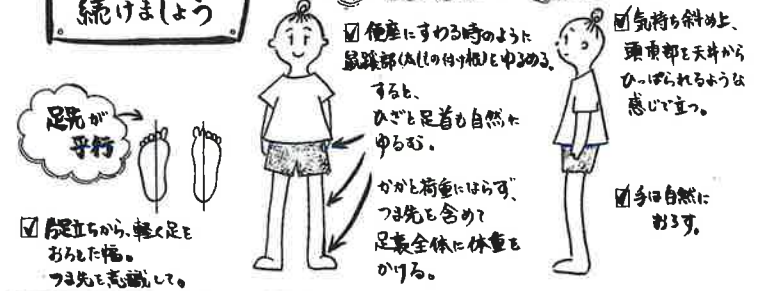 続けましょう
足先が
平行
☑ 片足立ちから、軽く足を
おろした幅。
つま先を意識して。
☑ 便座にすわる時のように
鼠蹊部(あしの付け根)をゆるめる。
すると、
ひざと足首も自然に
ゆるむ。
かかと荷重にはらず、
つま先を含めて
足裏全体に体重を
かける。
☑ 気持ち斜め上、
頭頂部を天井から
ひっぱられるような
感じで立つ。
☑ 手は自然に
おろす。